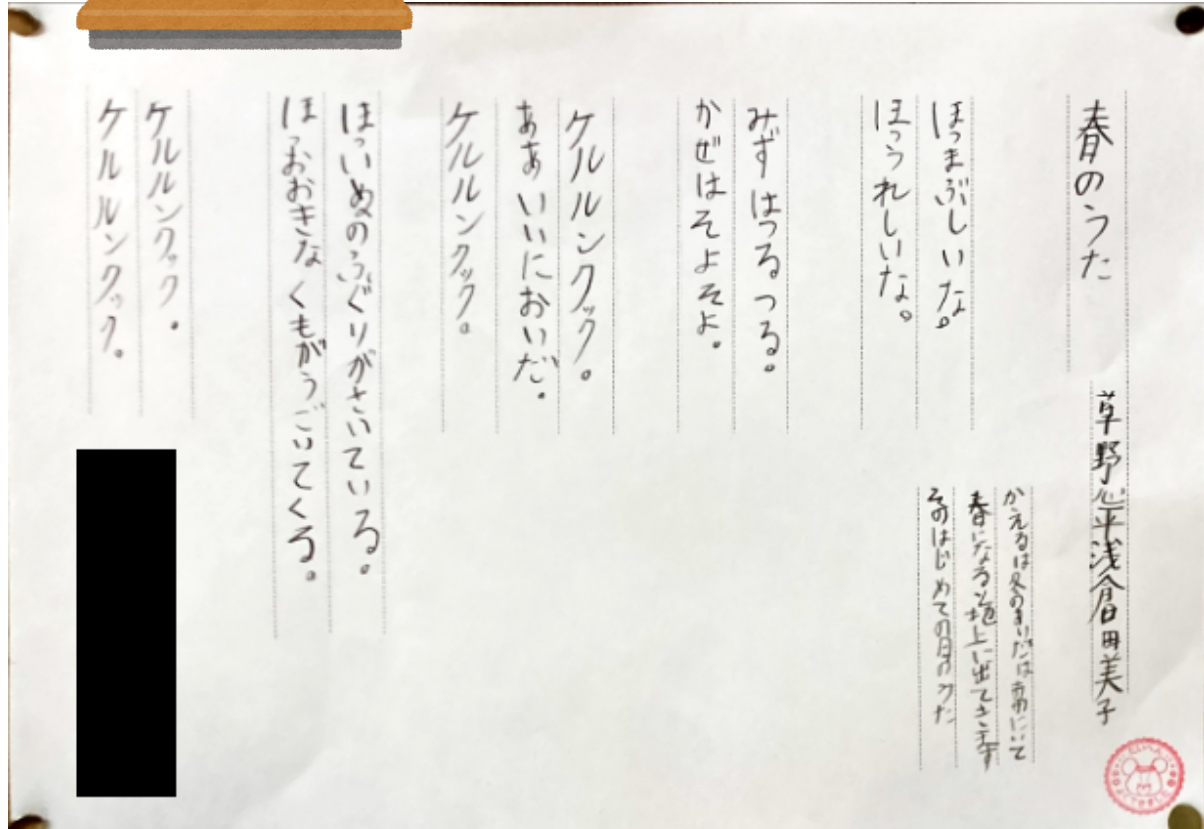 春のうた
草野心平浅倉田美子
かえるは冬のまいだは土の中にいて
春になると地上に出てきます
そのはじめての日のうた
ほっまぶしいな。
ほっうれしいな。
みずはつるつる。
かぜはそよそよ。
ケルルンクック。
ああいいにおいだ。
ケルルンクック。
ほっいぬのふぐりがさいている。
ほっおおきなくもがうごいてくる。
ケルルンクック。
ケルルンクック。